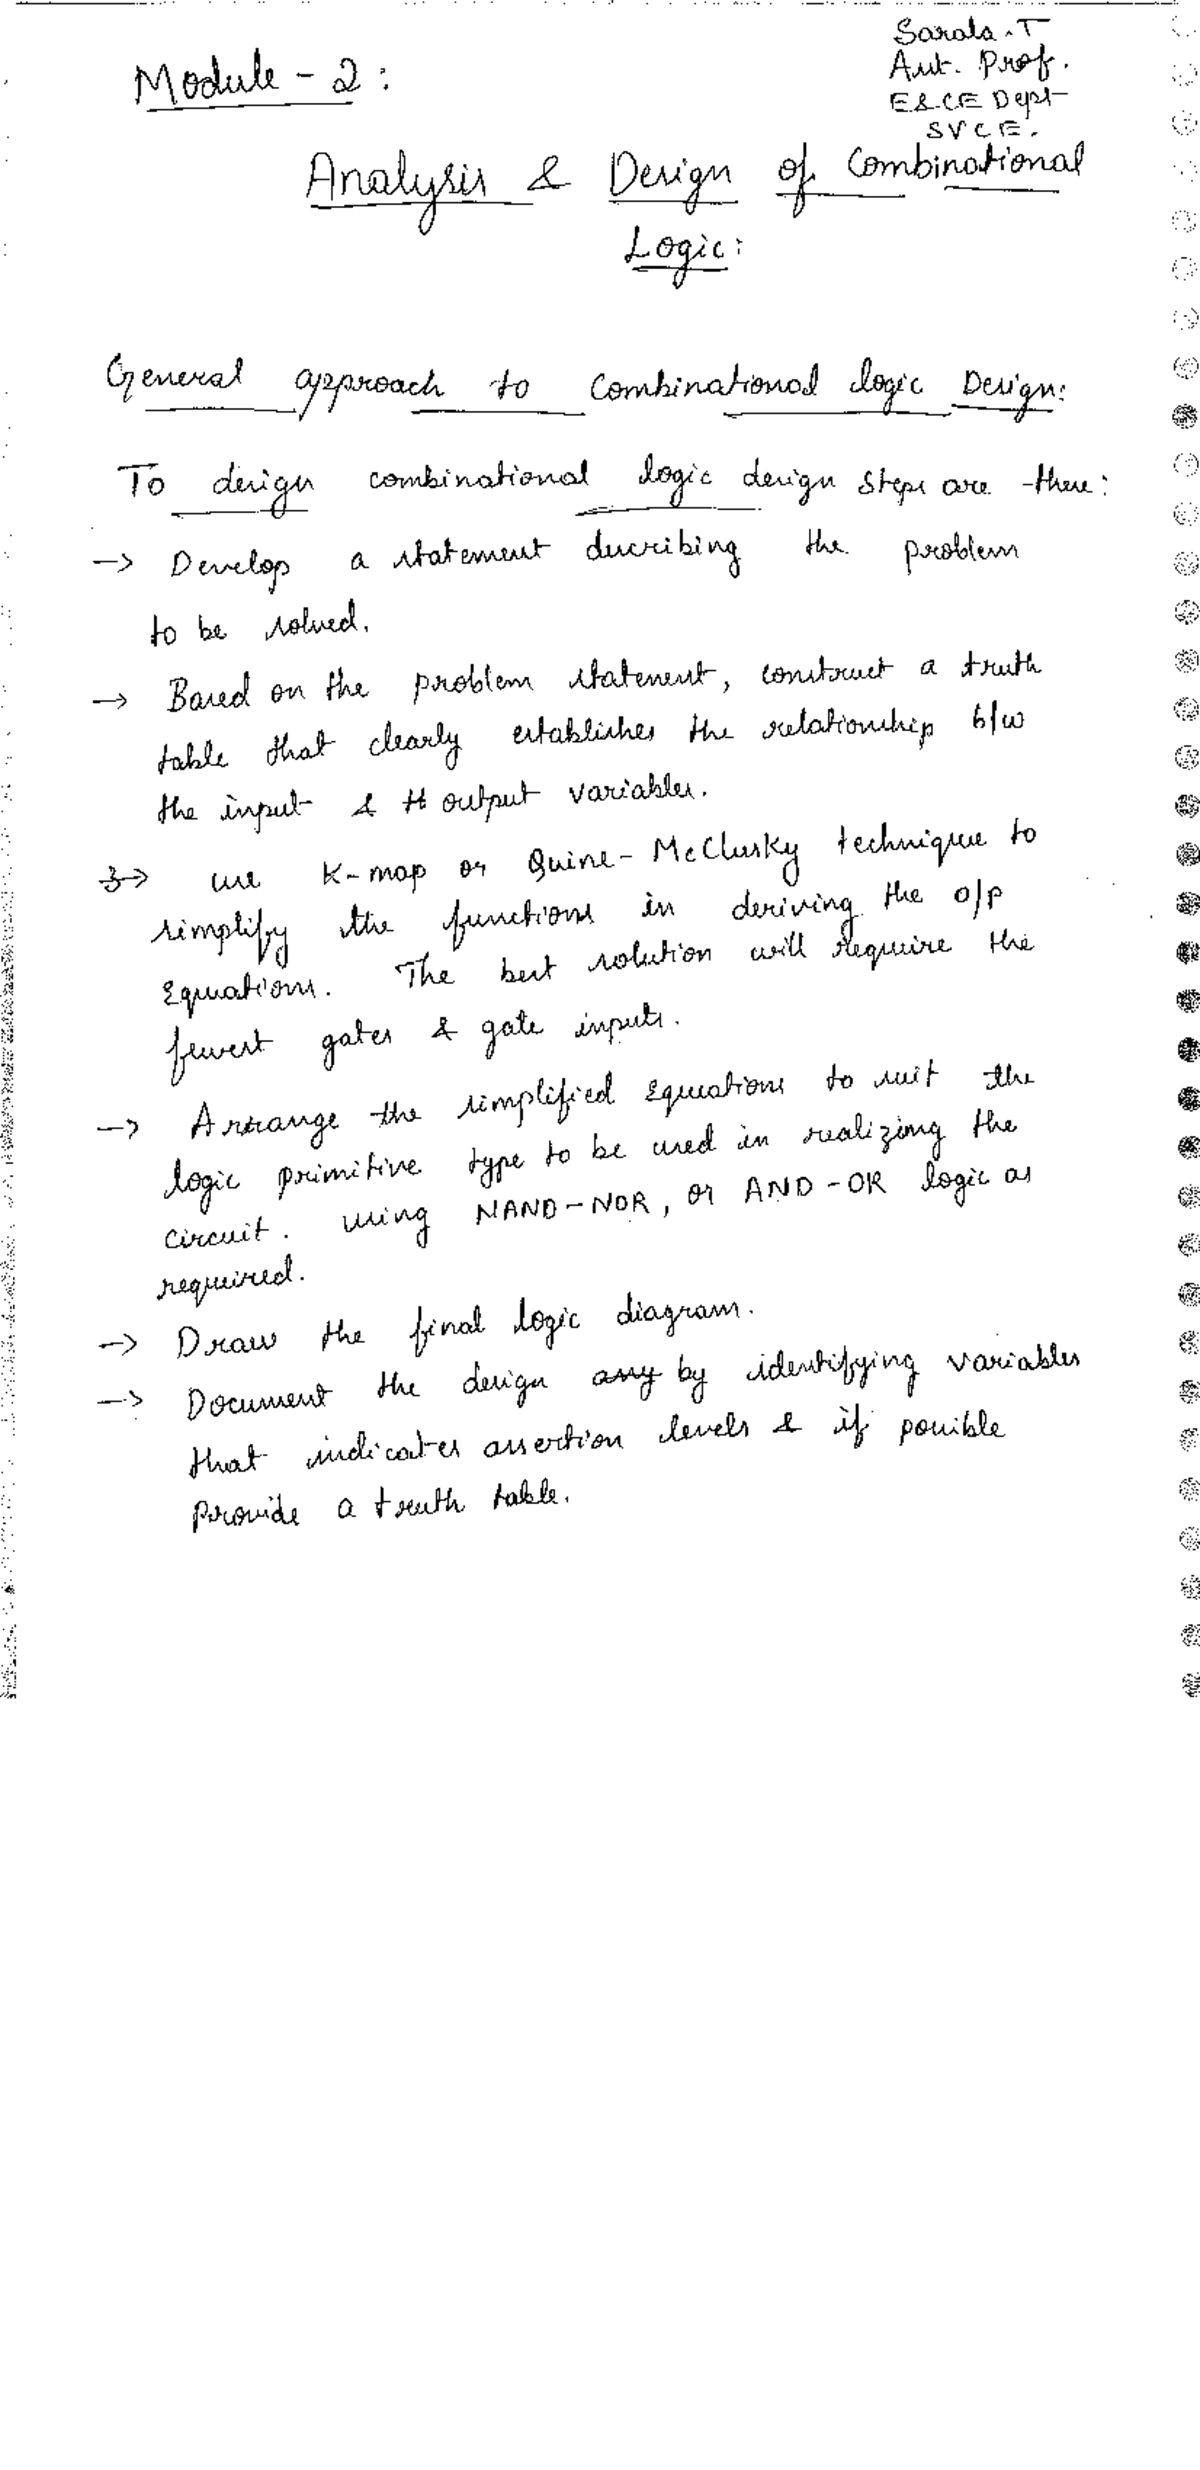 Sarala.T
Asst. Prof.
E&CE Dept
SVCE.
Module - 2:
Analysis & Design of Combinational
Logic:
General approach to Combinational logic Design:
To design combinational logic design steps are there:
→ Develop a statement describing the problem
to be solved.
→ Based on the problem statement, construct a truth
table that clearly establishes the relationship b/w
the input & output variables.
→ use K-map or Quine-McClusky technique to
simplify the functions in deriving the o/p
Equations. The best solution will require the
fewest gates & gate inputs.
→ Arrange the simplified Equations to suit the
logic primitive type to be used in realizing the
circuit. using NAND-NOR, or AND-OR logic as
required.
→ Draw the final logic diagram.
→ Document the design any by identifying variables
that indicates assertion levels & if possible
Provide a truth table.